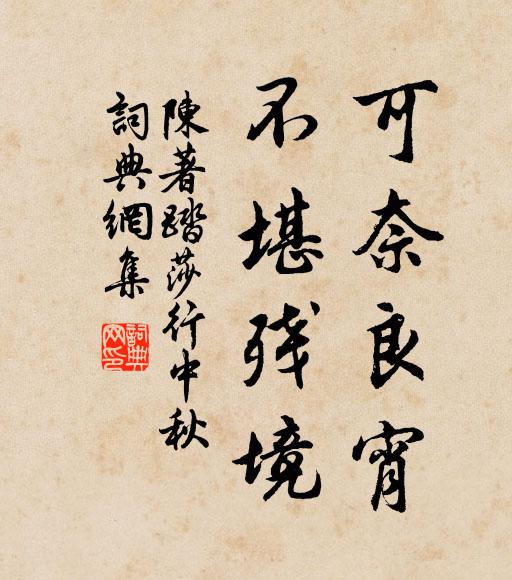 可奈良宵
不堪残境
陳著踏莎行中秋
詞典網集
詞典网印